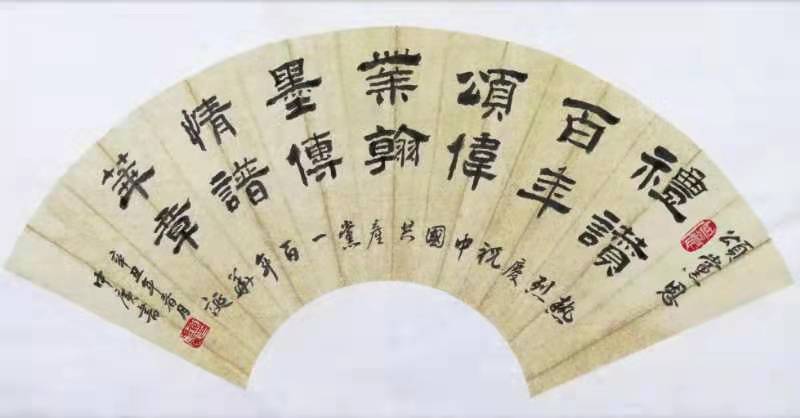 頌黨恩
禮讚
百年
頌偉
業翰
墨傳
情譜
華章
熱烈慶祝中國共產黨一百年華誕
辛丑年春月
中書